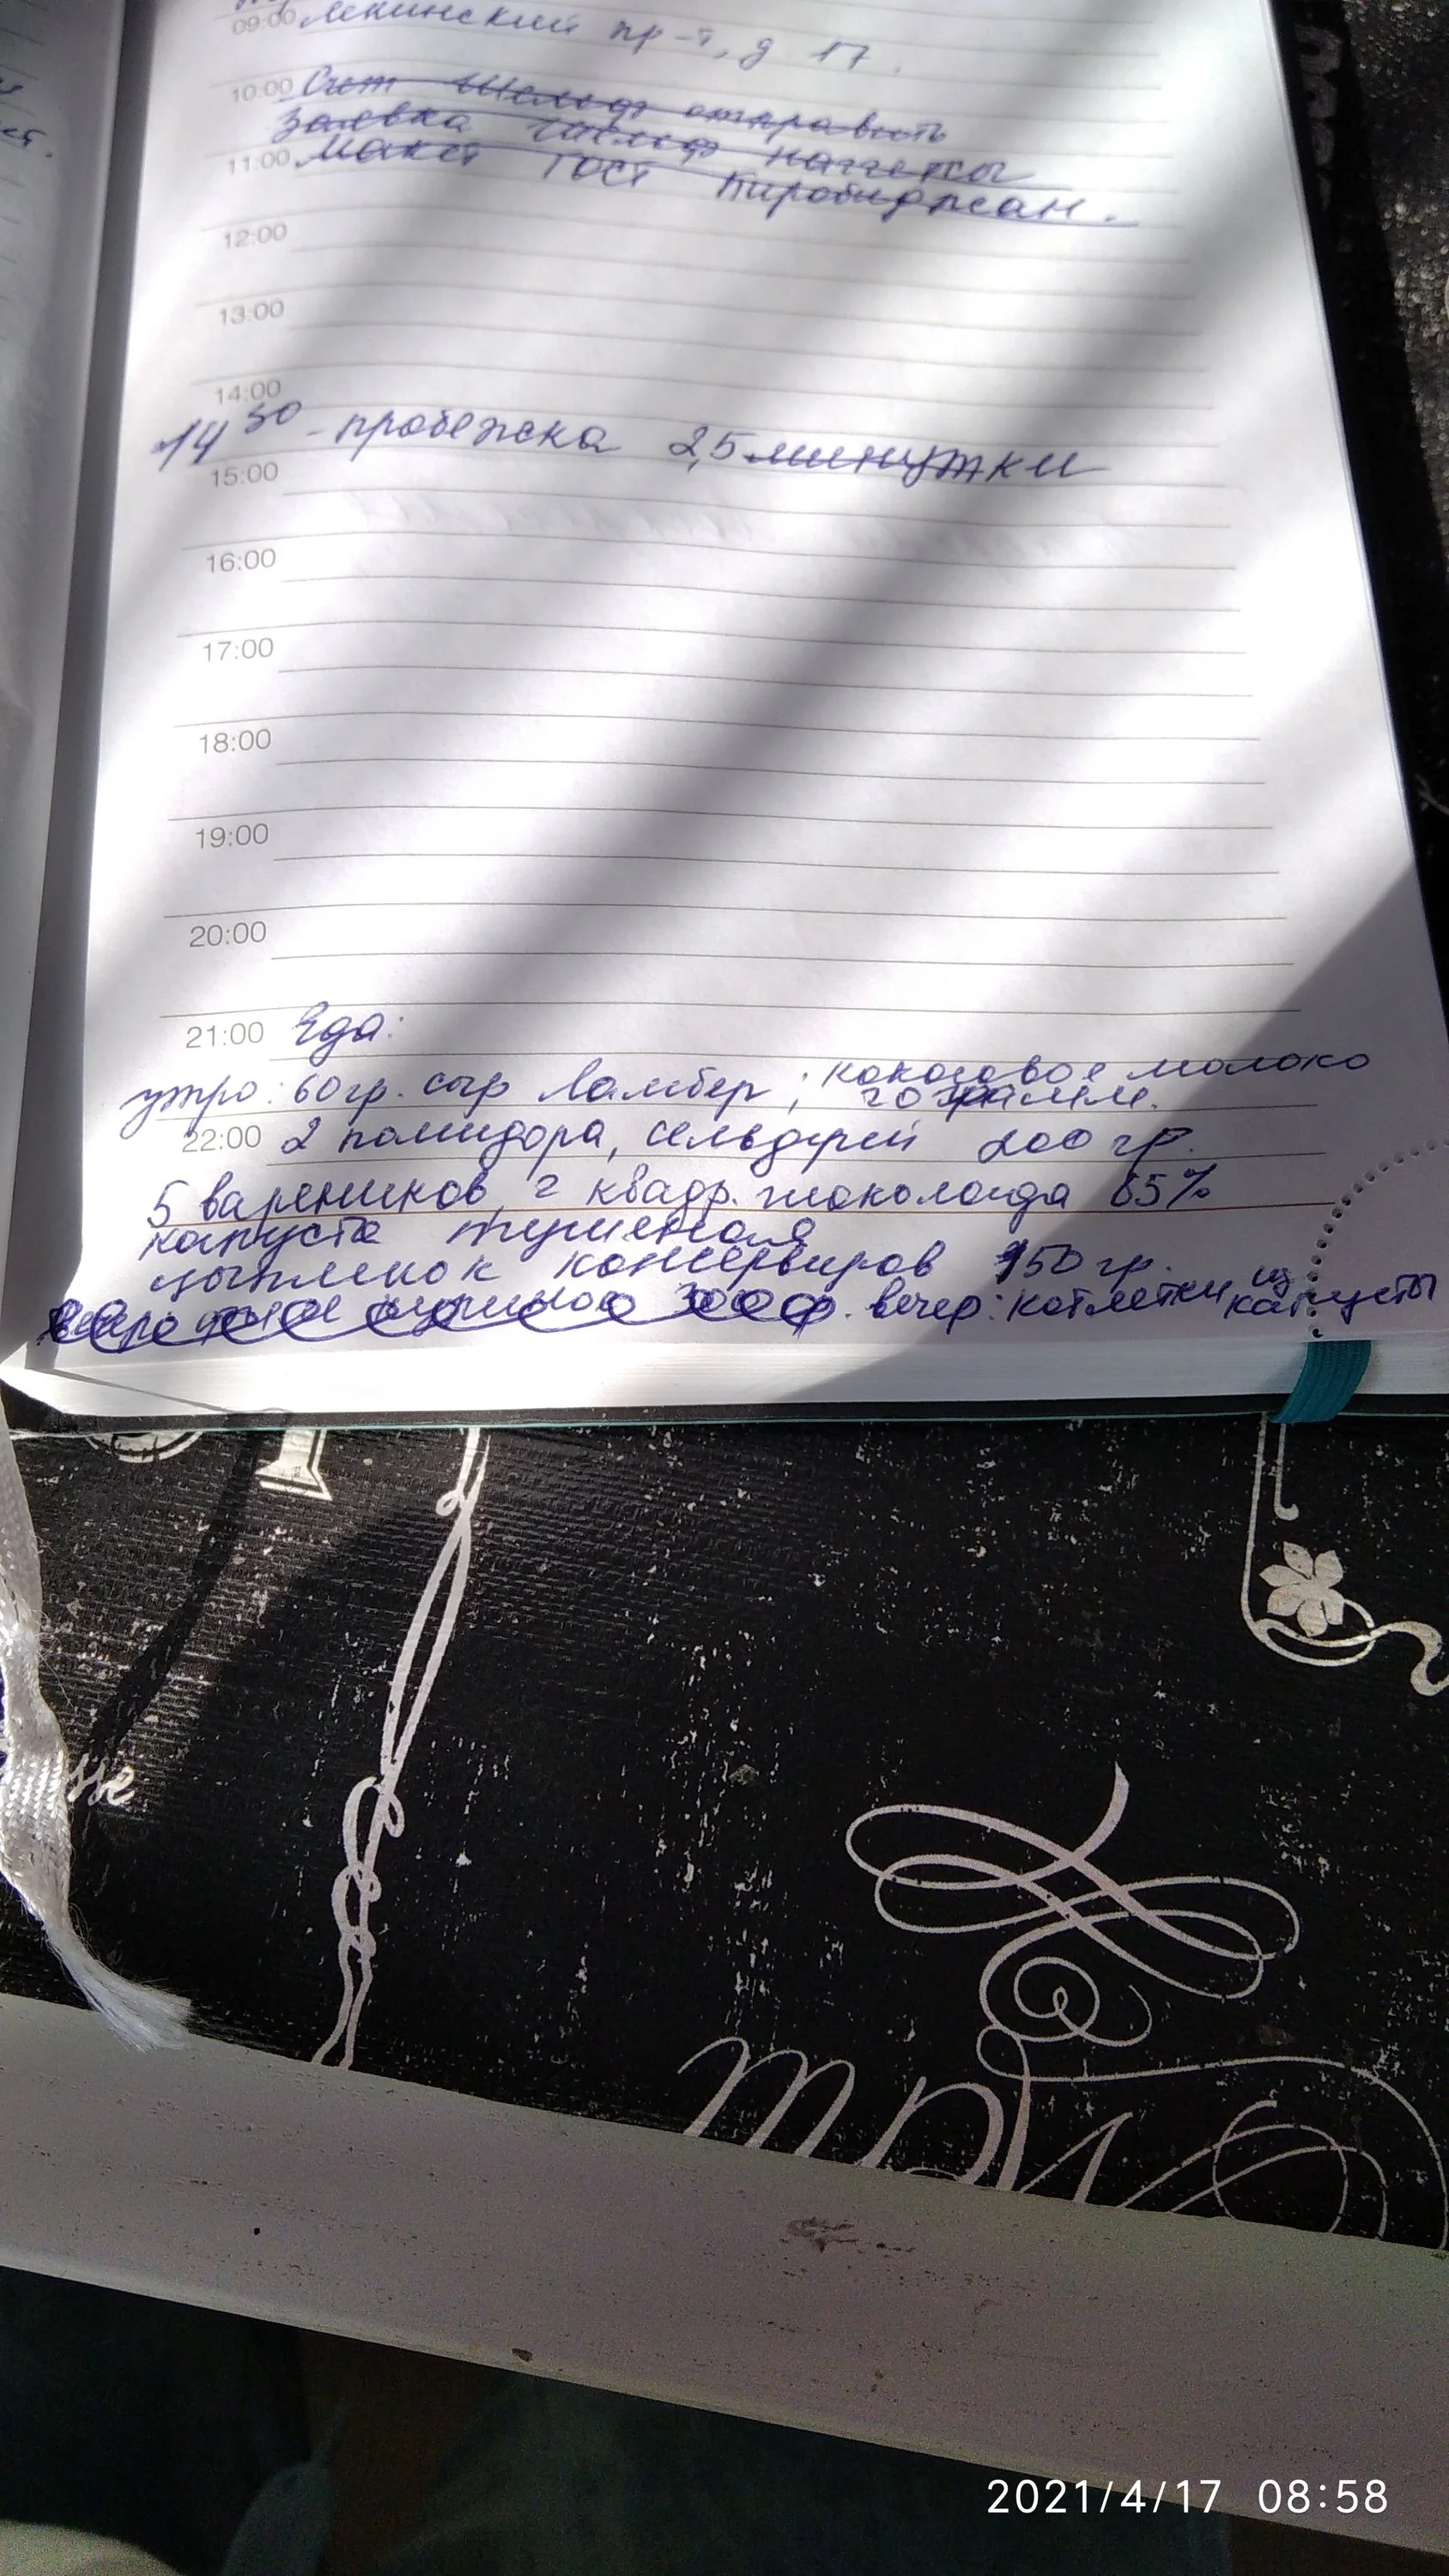 09:00 Ленинский пр-т, д 17.
10:00 Счет Шельф отправить
Заявка шельф наггетсы
11:00 Макет ГОСТ Биробиджан.
12:00
13:00
14:00
14 30 - пробежка 2,5 минутки
15:00
16:00
17:00
18:00
19:00
20:00
21:00 Еда:
утро: 60гр. сыр Ламбер; кокосовое молоко
20 грамм.
22:00 2 помидора, сельдерей 200 гр.
5 вареников, 2 квадр. шоколада 65%
капуста тушеная
цыпленок консервиров 150 гр.
вечер: котлетки из капусты
sse
2021/4/17 08:58